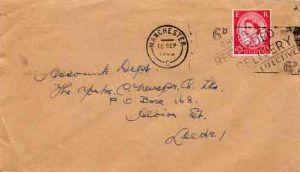 MANCHESTER
16 SEP
C
6D
RECORDED
DELIVERY
EFFECTIVE
6D
Accounts Dept
The Yorks. C. Newspaper Co. Ltd.
P.O Box 168.
Albion St.
Leeds 1